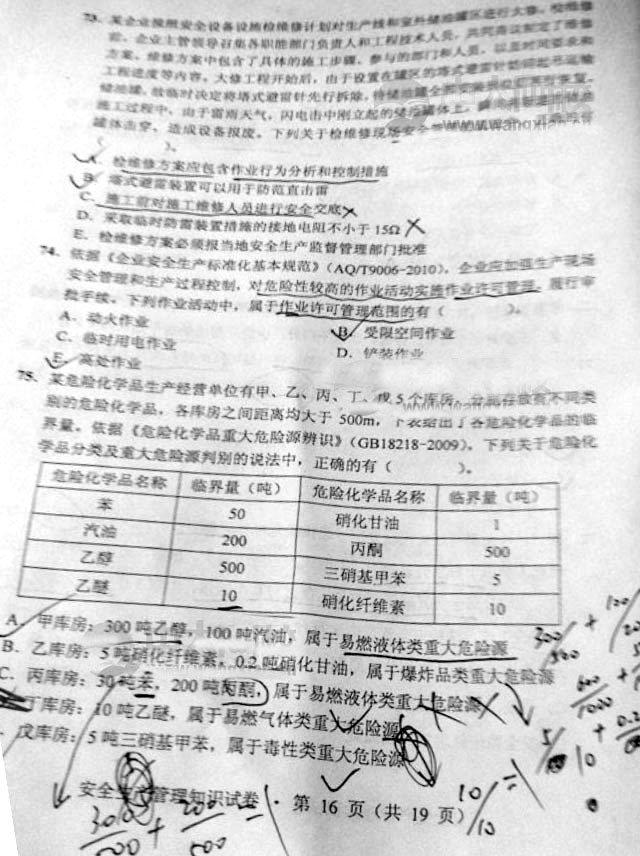 73、某企业按照安全设备设施检维修计划对生产线和室外储油罐区进行大修。检维修
前，企业主管领导召集各职能部门负责人和工程技术人员，共同商议制定了维修
方案。维修方案中包含了具体的施工步骤、参与的部门和人员，以及时间要求和
工程进度等内容。大修工程开始后，由于设置在罐区的塔式避雷针妨碍吊运输
储油罐，故临时决定将塔式避雷针先行拆除，待储油罐全部安装到位后再行恢复。
施工过程中，由于雷雨天气，闪电击中刚立起的储油罐体上，瞬间将
罐体击穿，造成设备报废。下列关于检维修现场安全
（ ）。
A、检维修方案应包含作业行为分析和控制措施
B、塔式避雷装置可以用于防范直击雷
C、施工前对施工维修人员进行安全交底
D、采取临时防雷装置措施的接地电阻不小于 15Ω
E、检维修方案必须报当地安全生产监督管理部门批准
74、依据《企业安全生产标准化基本规范》（AQ/T9006-2010），企业应加强生产现场
安全管理和生产过程控制，对危险性较高的作业活动实施作业许可管理，履行审
批手续。下列作业活动中，属于作业许可管理范围的有（ ）。
A、动火作业 B、受限空间作业
C、临时用电作业 D、铲装作业
E、高处作业
75、某危险化学品生产经营单位有甲、乙、丙、丁、戊 5 个库房，分别存放有不同类
别的危险化学品，各库房之间距离均大于 500m，下表给出了各危险化学品的临
界量。依据《危险化学品重大危险源辨识》（GB18218-2009），下列关于危险化
学品分类及重大危险源判别的说法中，正确的有（ ）。
危险化学品名称 临界量（吨） 危险化学品名称 临界量（吨）
苯 50 硝化甘油 1
汽油 200 丙酮 500
乙醇 500 三硝基甲苯 5
乙醚 10 硝化纤维素 10
A、甲库房：300 吨乙醇，100 吨汽油，属于易燃液体类重大危险源
B、乙库房：5 吨硝化纤维素，0.2 吨硝化甘油，属于爆炸品类重大危险源
C、丙库房：30 吨苯，200 吨丙酮，属于易燃液体类重大危险源
丁库房：10 吨乙醚，属于易燃气体类重大危险源
戊库房：5 吨三硝基甲苯，属于毒性类重大危险源
安全生产管理知识试卷 · 第 16 页（共 19 页）